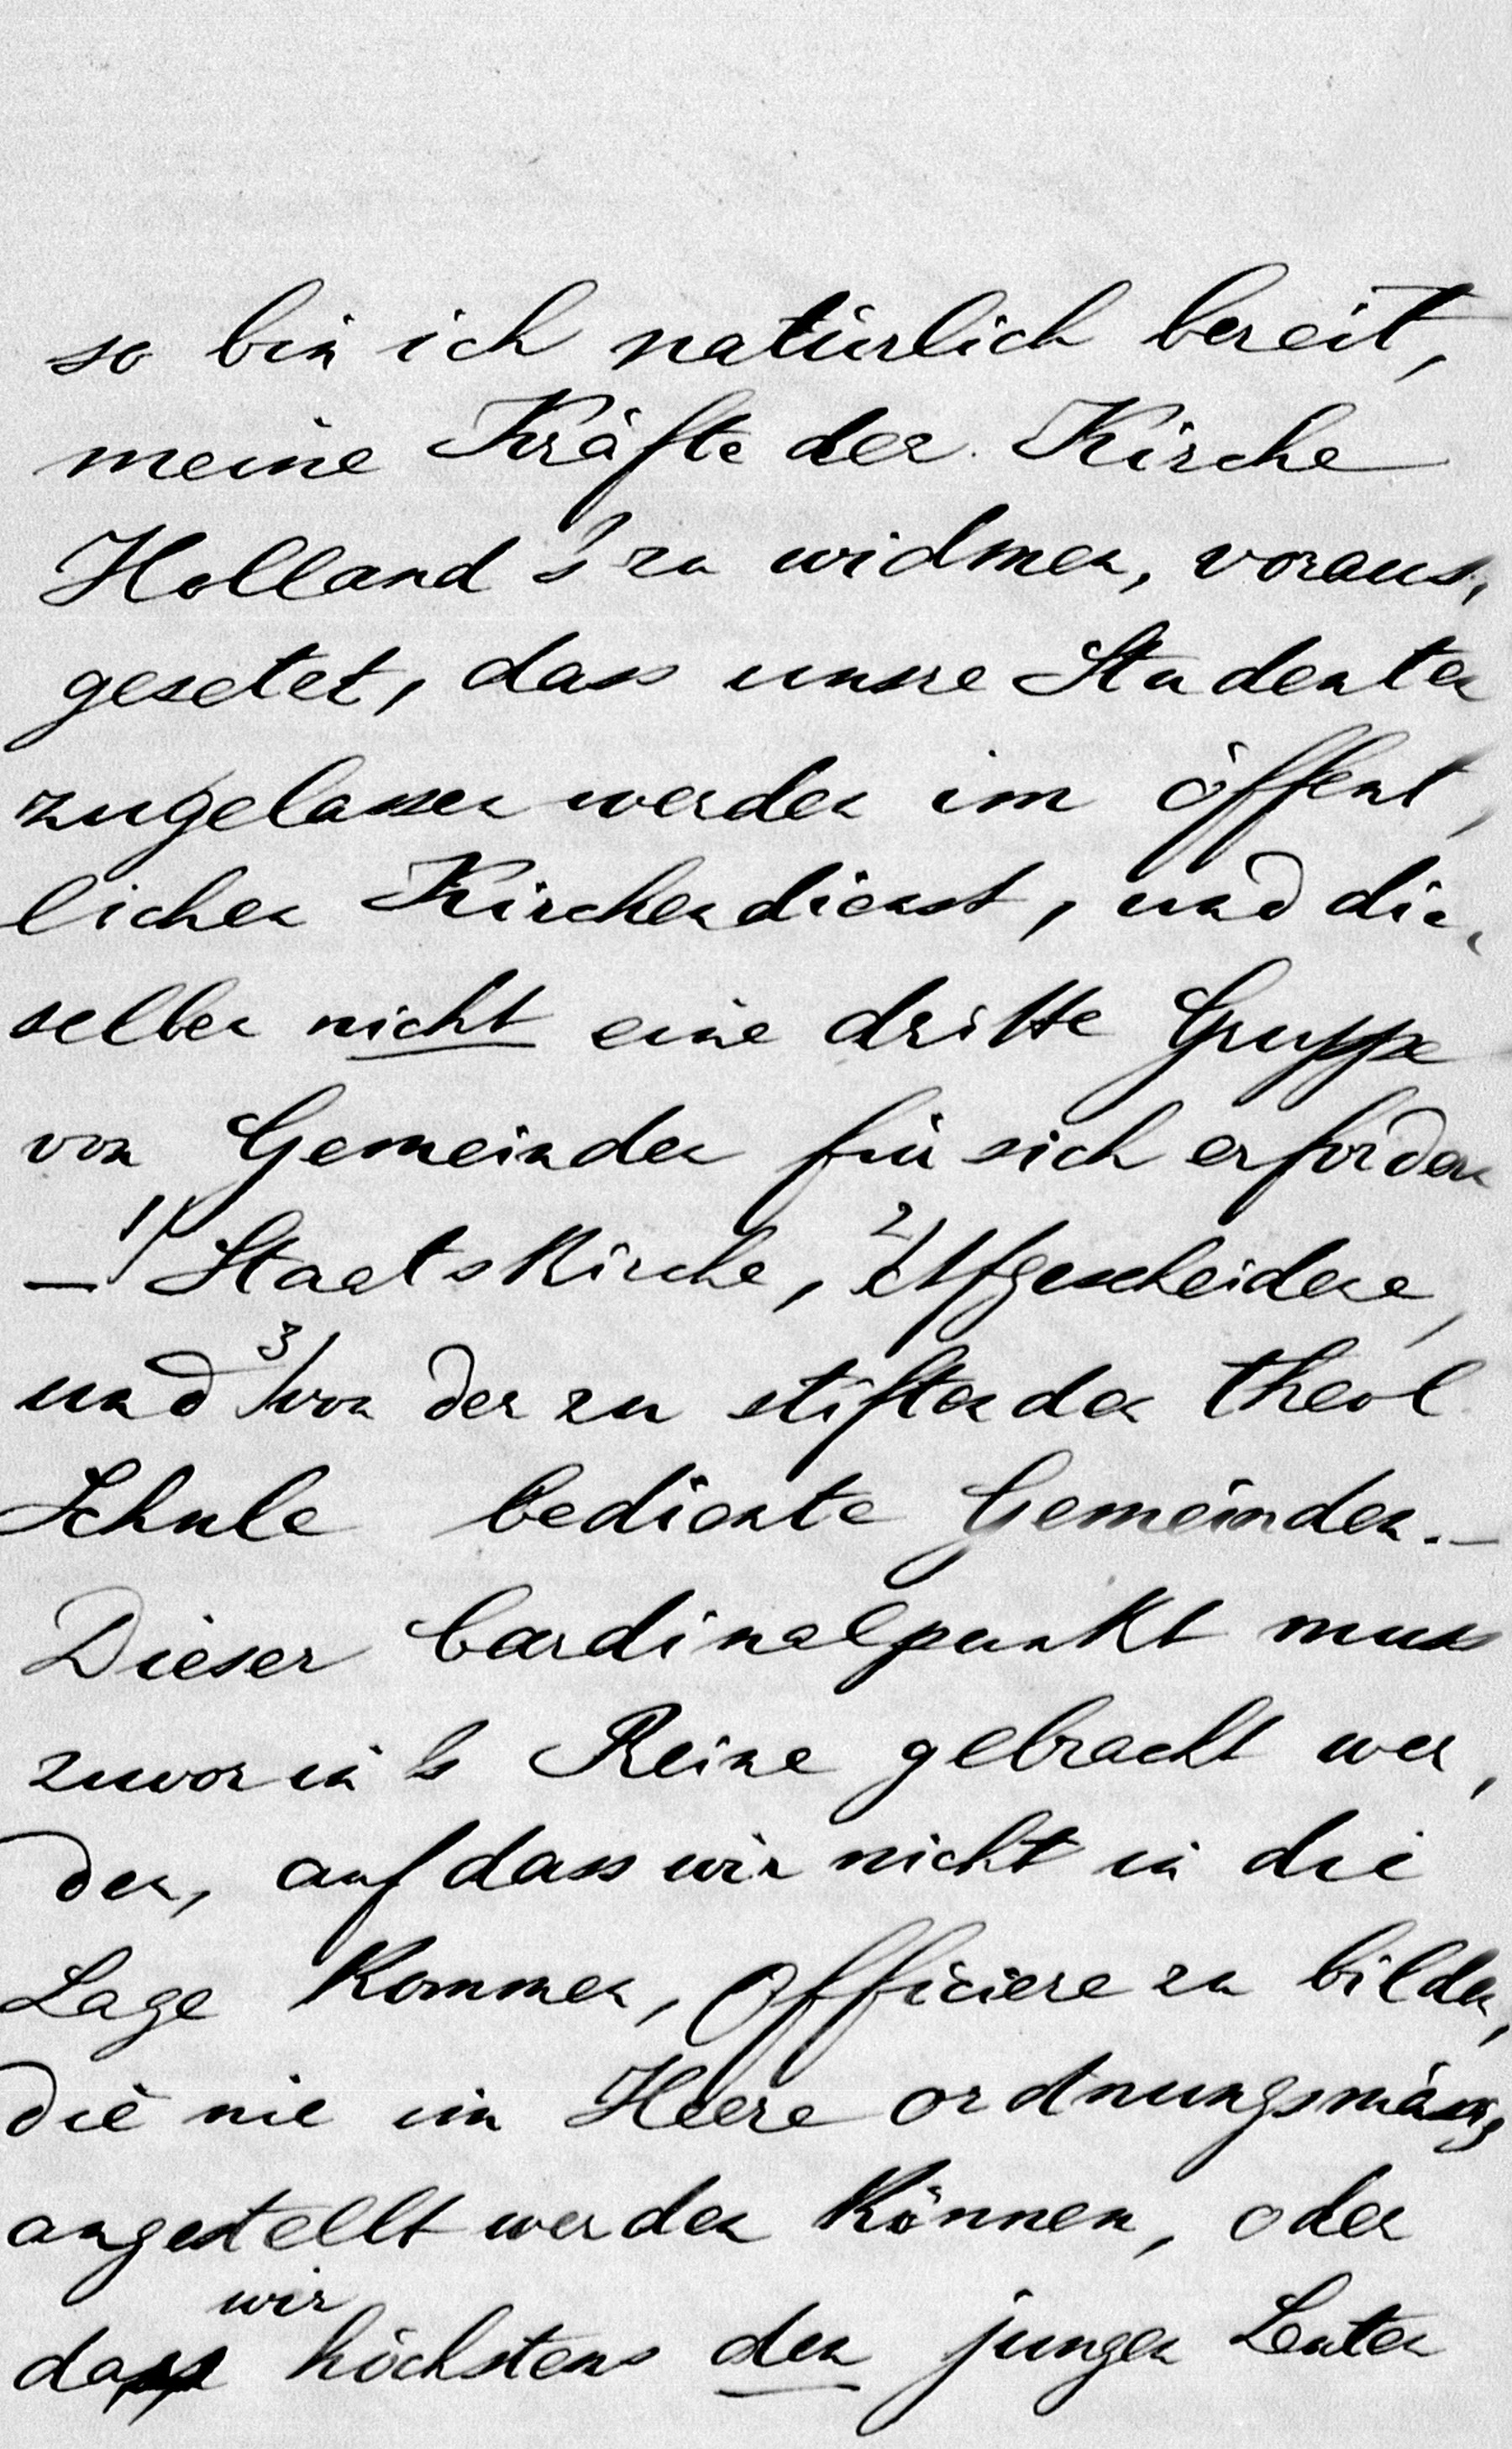 so bin ich natürlich bereit,
meine Kräfte der Kirche
Holland's zu widmen, voraus,
gesetzt, dass unsre Studenten
zugelassen werden im öffent,
lichen Kirchendienst, und die,
selben nicht eine dritte Gruppe
von Gemeinden für sich erfordern
— 1) Staatskirche, 2) Afgescheidene,
und 3) von der zu stiftenden theol.
Schule bediente Gemeinden. —
Dieser Cardinalpunkt muss
zuvor in's Reine gebracht wer,
den, auf dass wir nicht in die
Lage kommen, Officiere zu bilden,
die nie im Heere ordnungsmässig
angestellt werden können, oder
dass wir höchstens den jungen Leuten